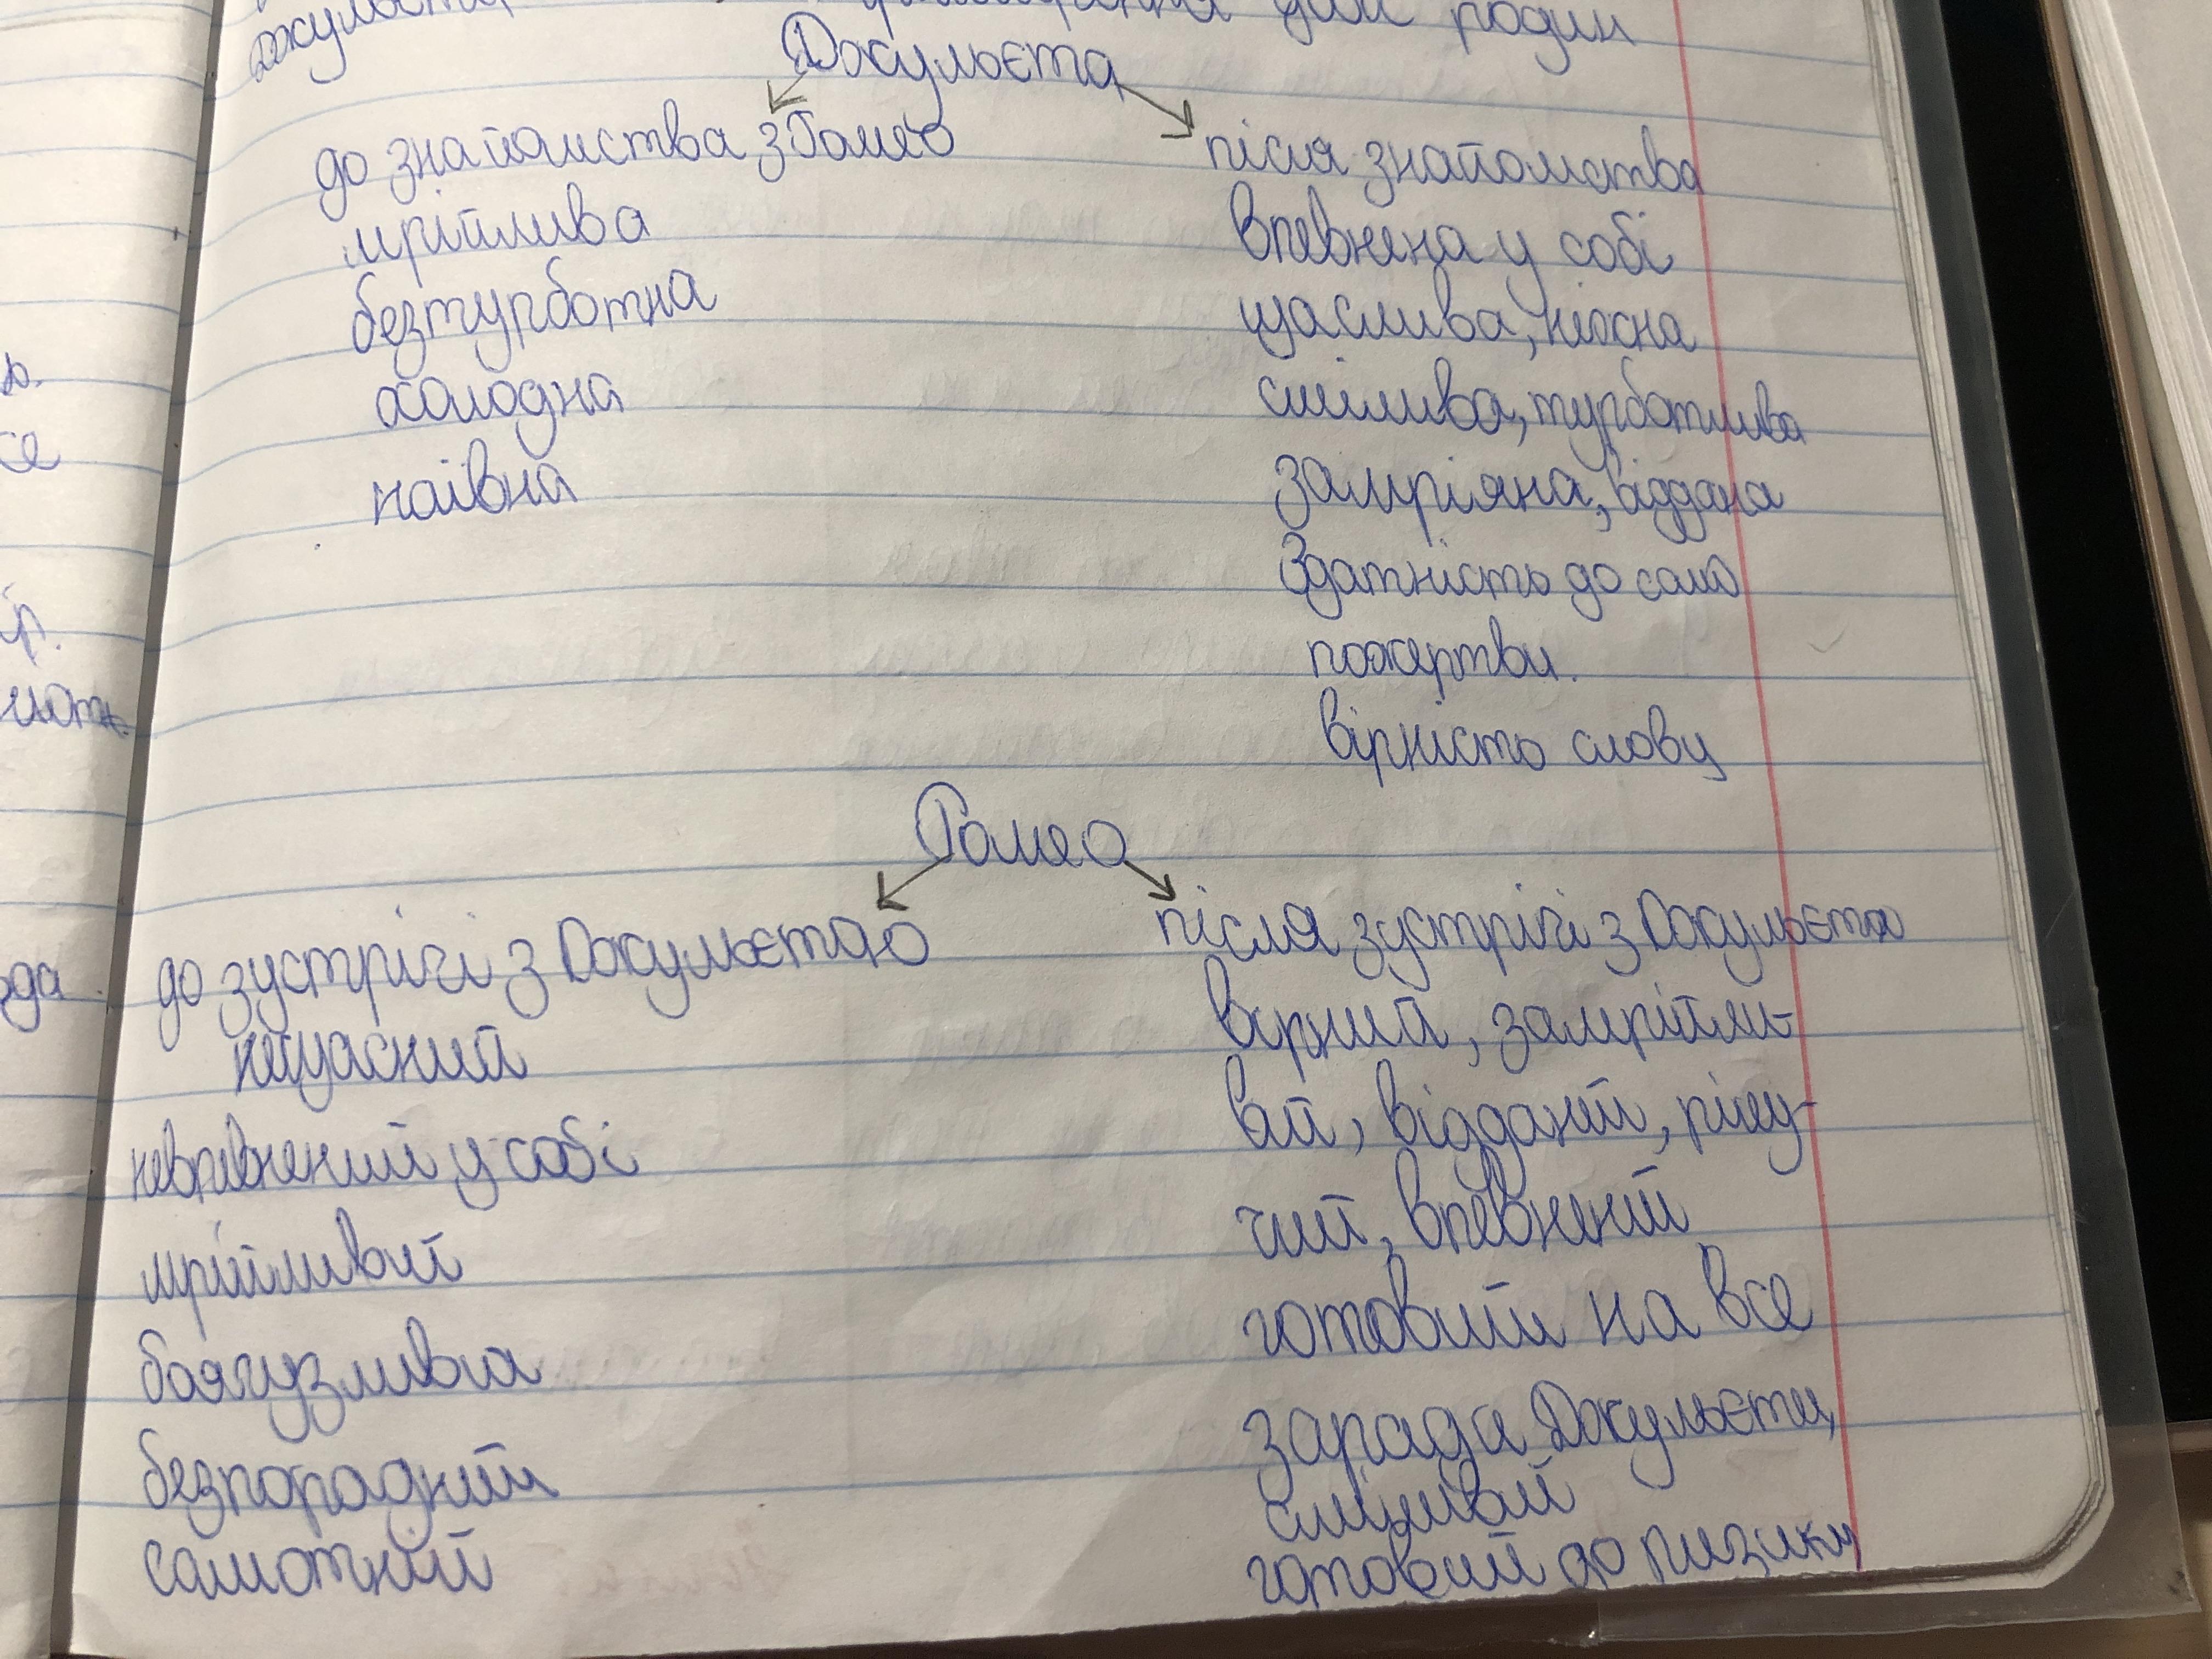 Джульєта
родин
Джульєта
до знайомства з Ромео
мрійлива
безтурботна
холодна
наївна
після знайомства
впевнена у собі
щаслива, ніжна
смілива, турботлива
замріяна, віддана
Здатність до само
пожертви.
вірність слову
Ромео
до зустрічі з Джульєтою
нещасний
невпевнений у собі
мрійливий
боягузлива
безпорадний
самотній
після зустрічі з Джульєта
вірний, замрійли-
вий, відданий, рішу-
чий, впевнений
готовий на все
заради Джульєти,
сміливий
готовий до ризику